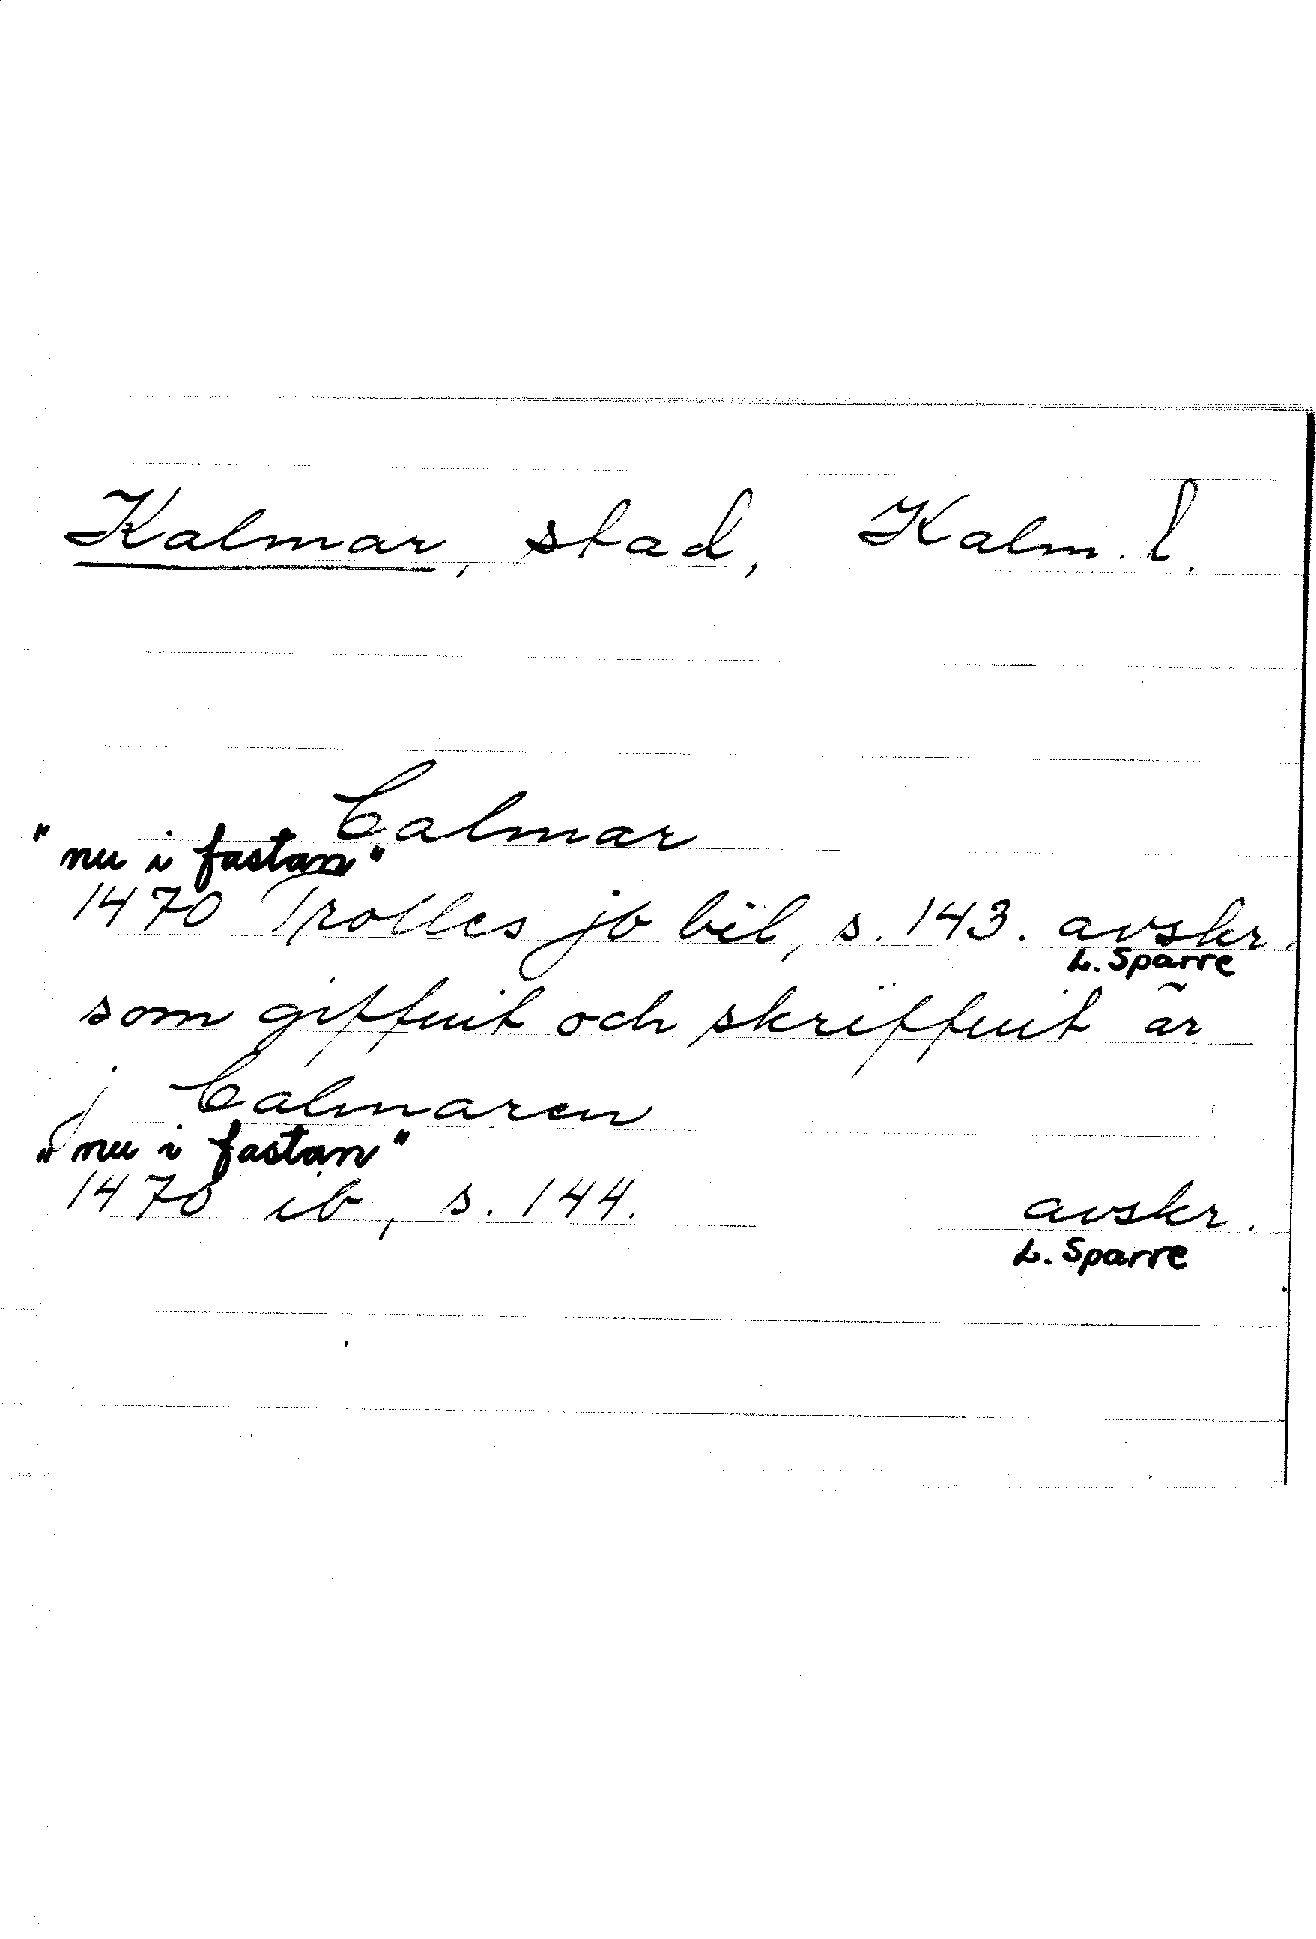 Kalmar, stad, Kalm. l.
Calmar
"nu i fastan"
1470 Trolles jb bil, s. 143. avskr.
L. Sparre
som giffuit och skriffuit är
j Calmaren
"nu i fastan"
1470 ib, s. 144. avskr.
L. Sparre